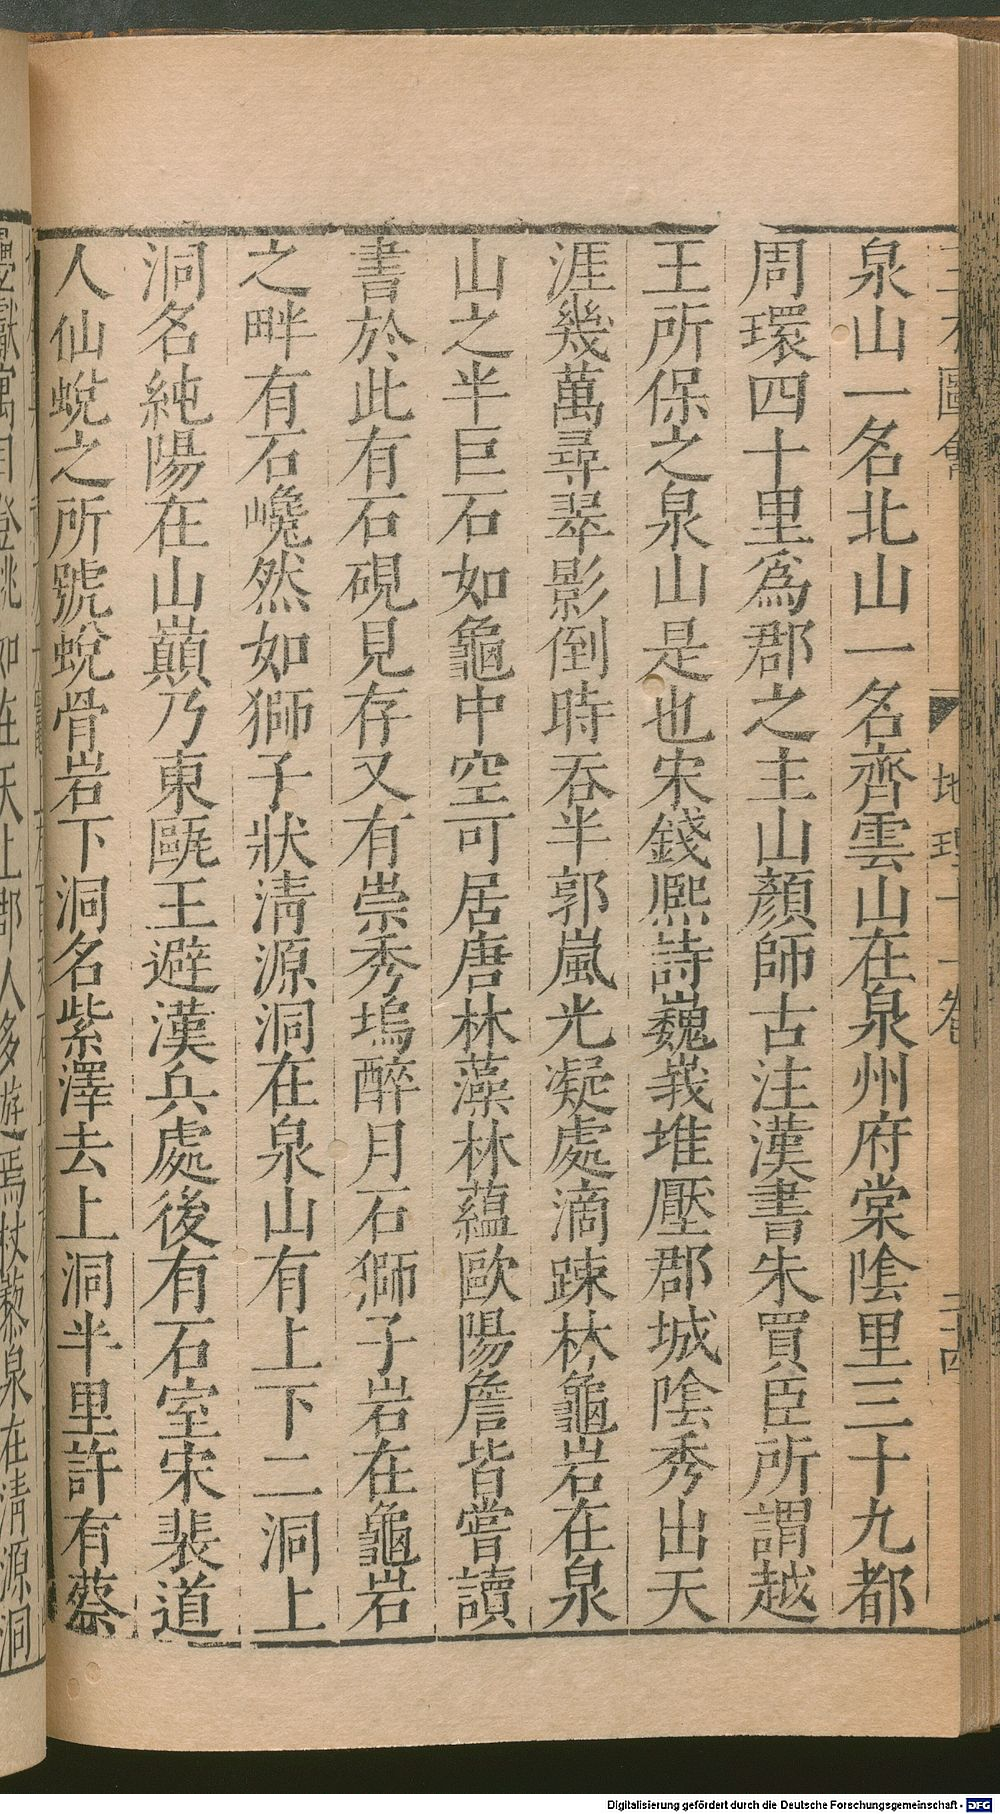 泉山一名北山一名齊雲山在泉州府棠陰里三十九都
周環四十里爲郡之主山顏師古注漢書朱買臣所謂越
王所保之泉山是也宋錢熈詩巍峩堆壓郡城陰秀出天
涯幾萬尋翠影倒時吞半郭嵐光凝處滴踈林龜岩在泉
山之半巨石如龜中空可居唐林藻林蘊歐陽詹皆嘗讀
書於此有石硯見存又有崇秀塢醉月石獅子岩在龜岩
之畔有石巉然如獅子狀清源洞在泉山有上下二洞上
洞名純陽在山巔乃東甌王避漢兵處後有石室宋裴道
人仙蛻之所號蛻骨岩下洞名紫澤去上洞半里許有蔡
圖會
地理十一卷
目登眺如在天上郡人多遊焉杖藜泉在清源洞
Digitalisierung gefördert durch die Deutsche Forschungsgemeinschaft - DFG